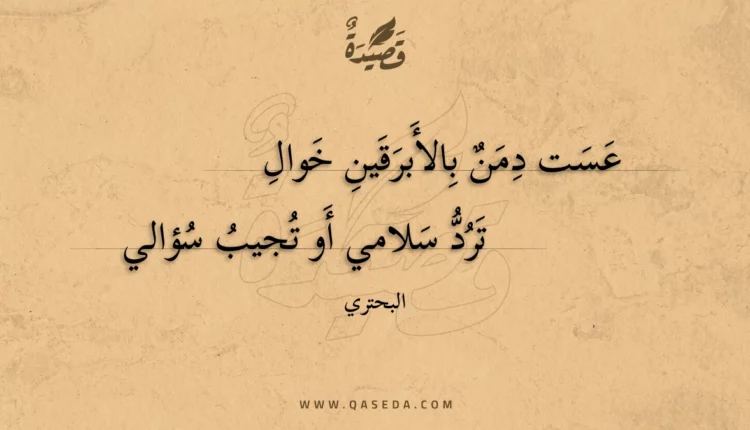 قَصِيدَةٌ
عَسَت دِمَنٌ بِالأَبرَقَينِ خَوالِ
تَرُدُّ سَلامي أَو تُجيبُ سُؤالي
البحتري
WWW.QASEDA.COM